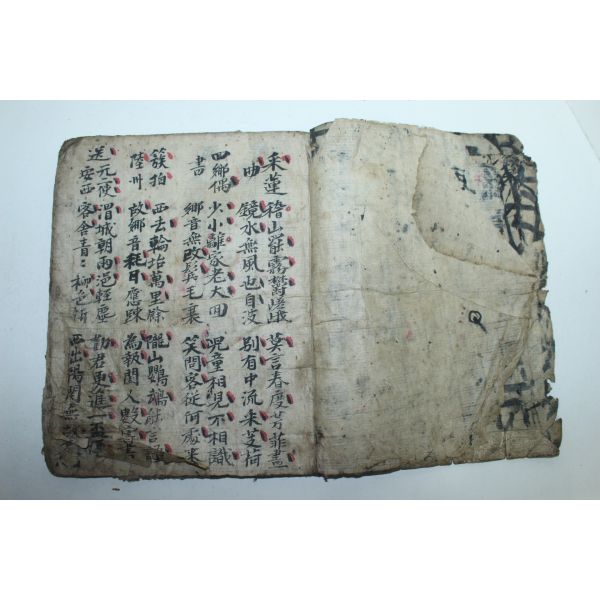 采蓮 稽山罷霧鬱嵯峨 莫言春度芳菲盡
曲 鏡水無風也自波 別有中流采芰荷
回鄉偶 少小離家老大回 兒童相見不相識
書 鄉音無改鬢毛衰 笑問客從何處來
簇拍 西去輪坮萬里餘 隴山鸚鵡能言語
陸州 故鄉音耗日應踈 為報閨人數寄書
送元使 渭城朝雨浥輕塵 勸君更進一盃酒
安西 客舍青〻柳色新 西出陽関無